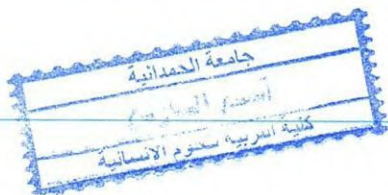 جامعة الحمدانية
كلية التربية للعلوم الانسانية